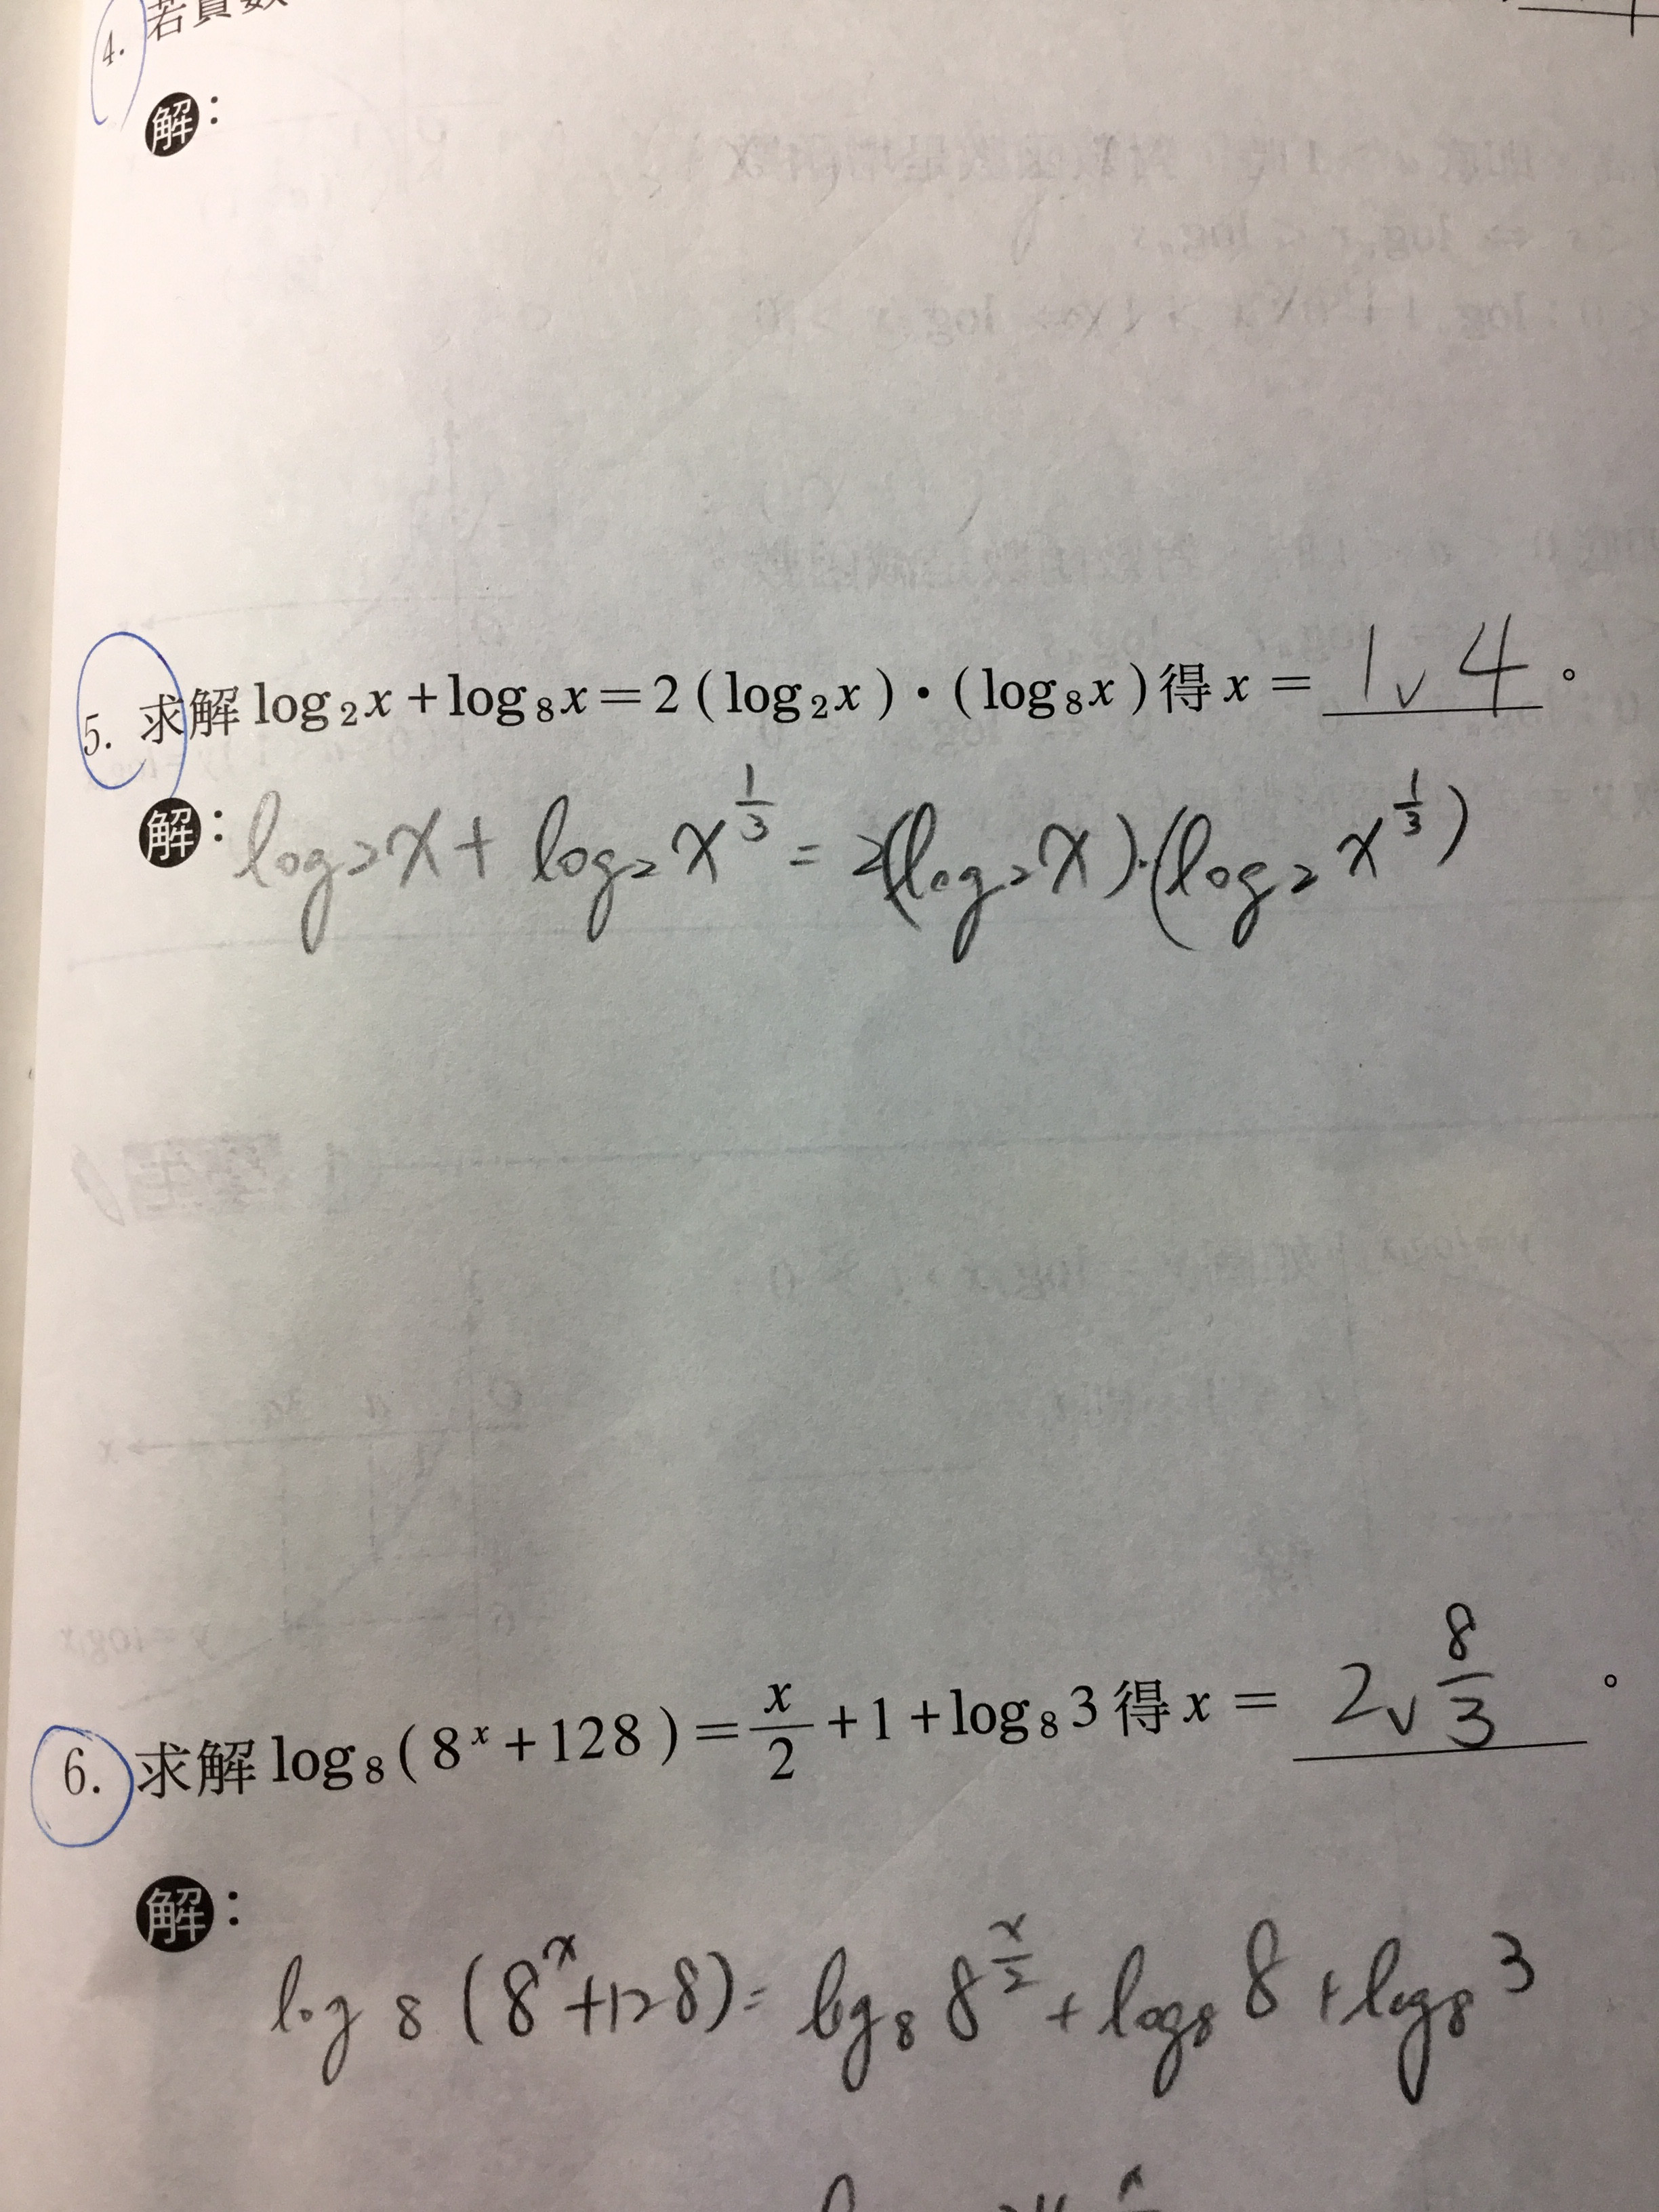 4. 若實數
解：
5. 求解 log₂x + log₈x = 2 ( log₂x ) · ( log₈x ) 得 x = 1 ∨ 4 。
解： log₂x + log₂x^(1/3) = 2(log₂x)·(log₂x^(1/3))
6. 求解 log₈ ( 8ˣ + 128 ) = x/2 + 1 + log₈3 得 x = 2 ∨ 8/3 。
解：
log₈ (8ˣ+128) = log₈8^(x/2) + log₈8 + log₈3